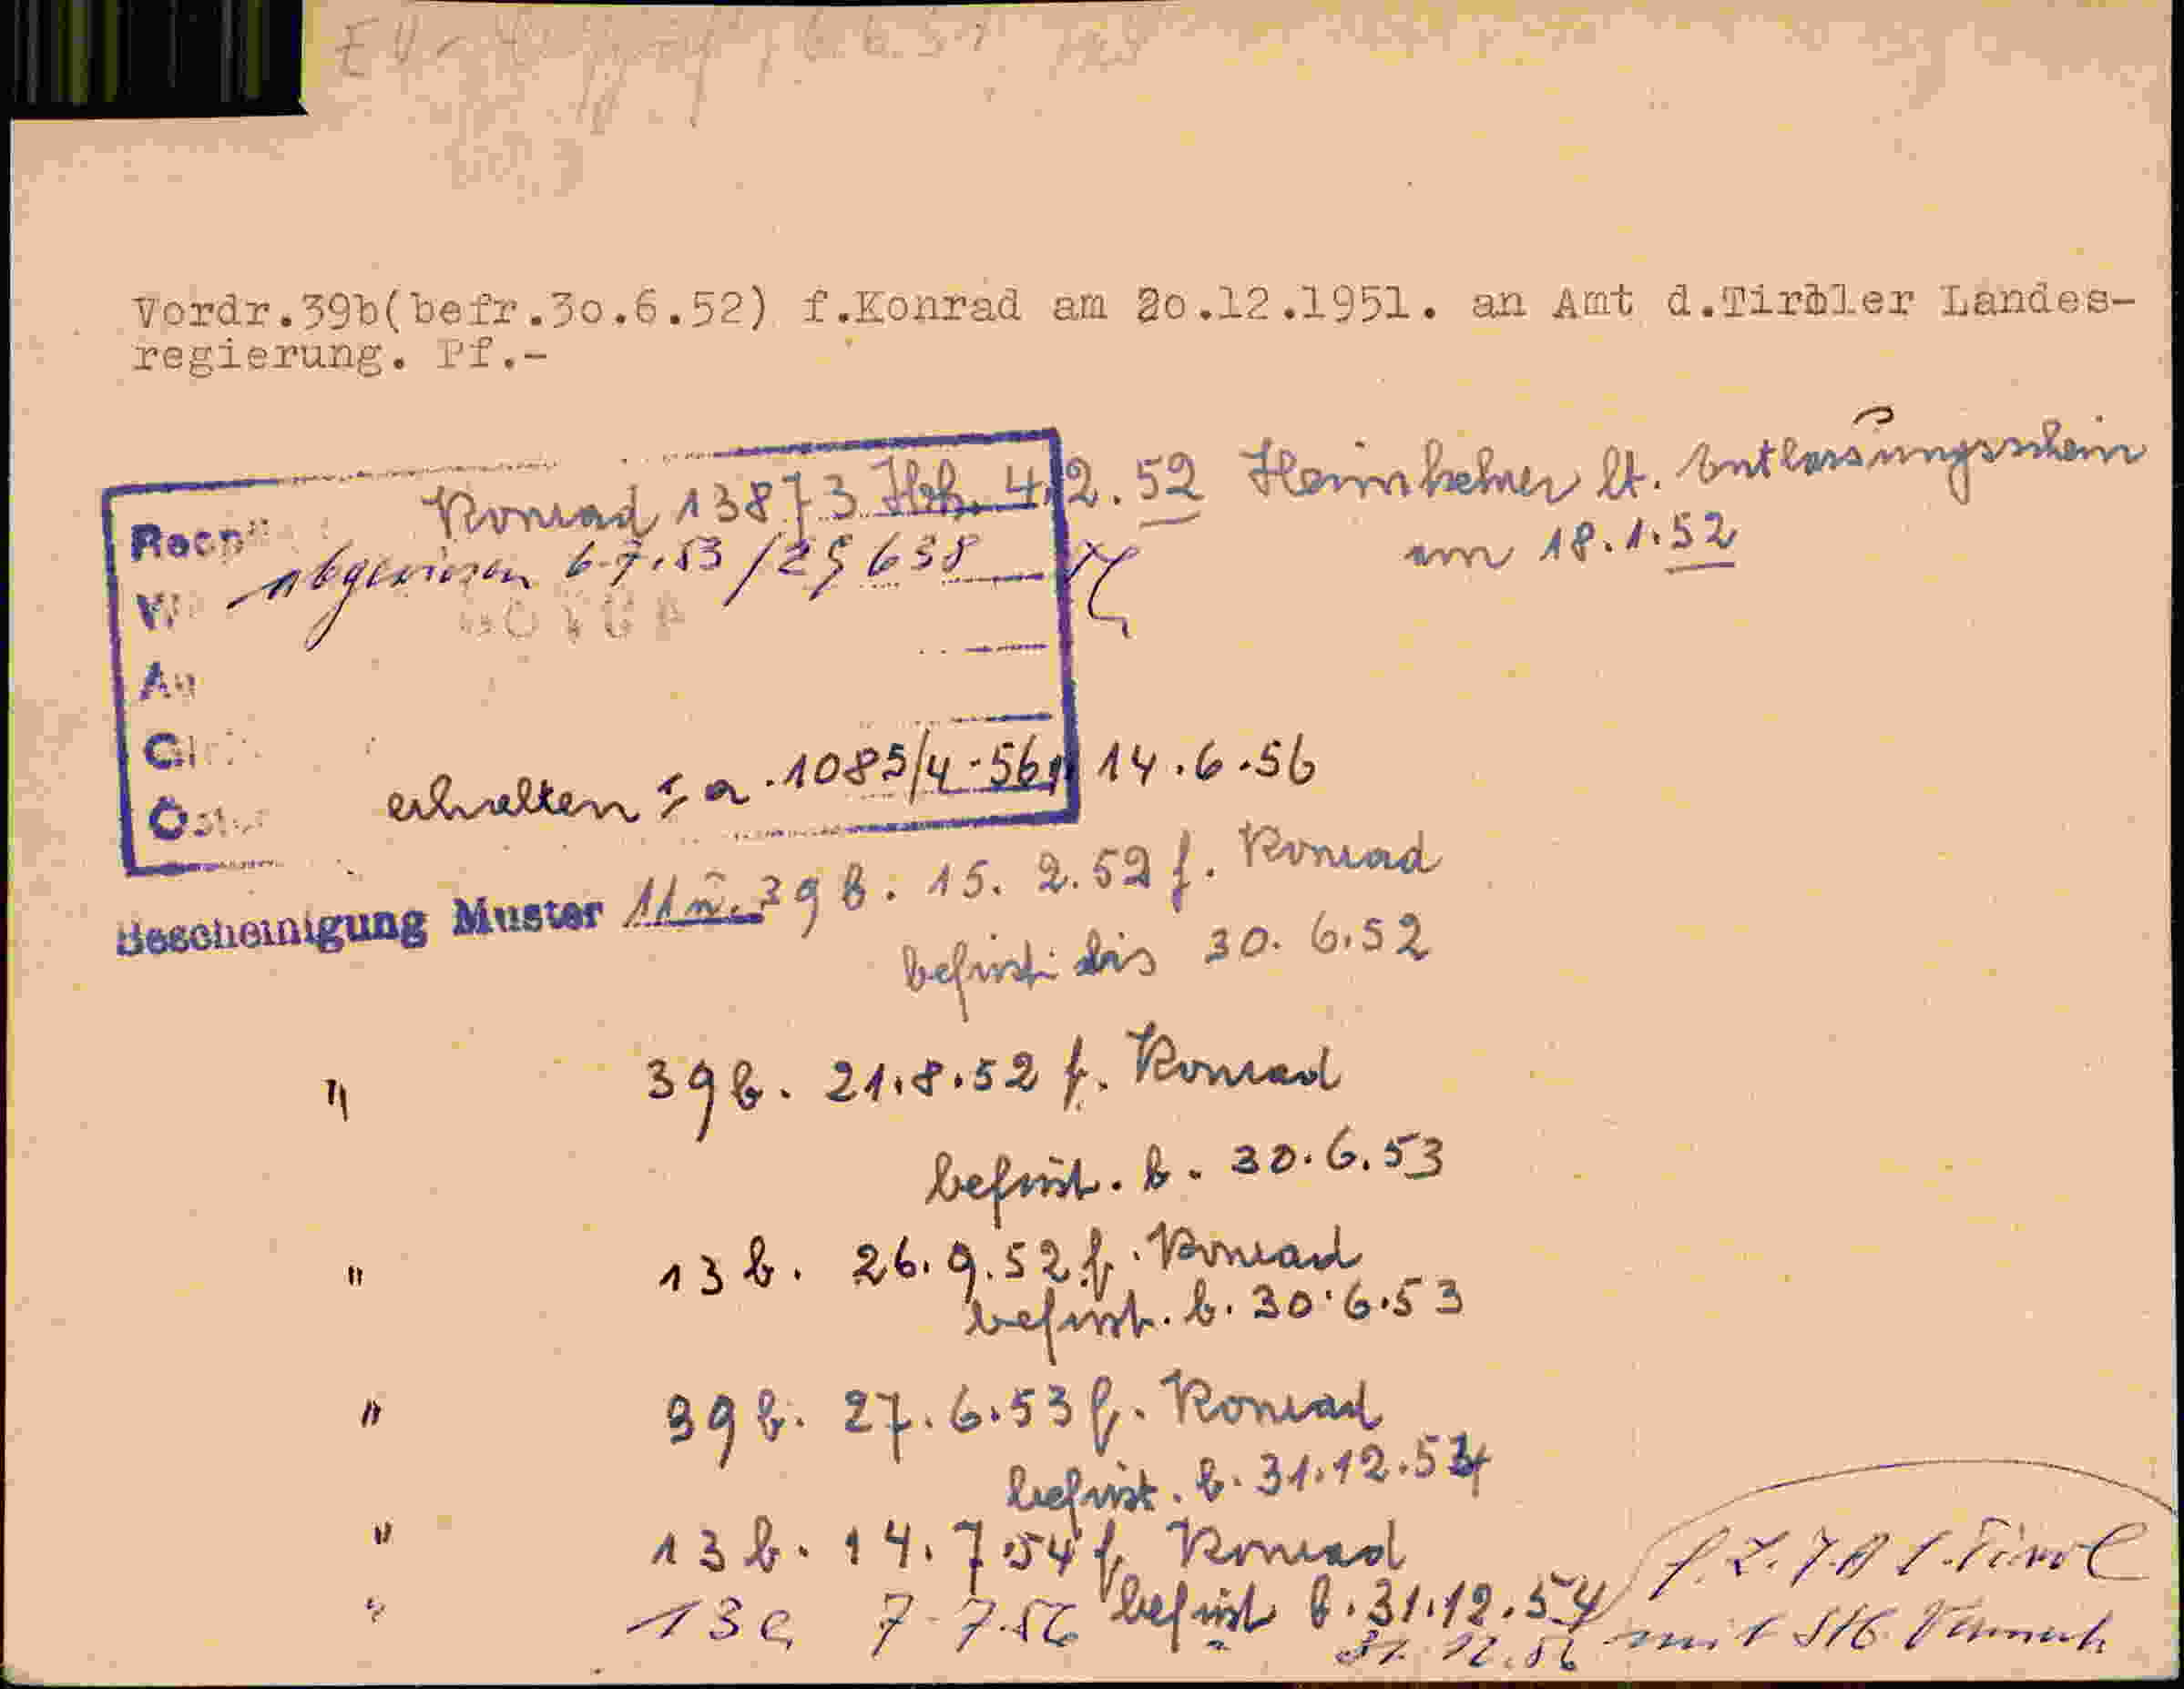 Vordr.39b(befr.3o.6.52) f.Konrad am 2o.12.1951. an Amt d.Tiroler Landes-
regierung. Pf.-
Konrad 13873 Hbk. 4.2.52 Heimkehrer lt. Entlassungsschein
am 18.1.52
abgewiesen 6.7.53/29638
erhalten 1085/4.56 14.6.56
Bescheinigung Muster 11 u. 39 b. 15. 2.52 f. Konrad
befrist. bis 30. 6.52
" 39 b. 21.8.52 f. Konrad
befrist. b. 30.6.53
" 13 b. 26.9.52 f. Konrad
befrist. b. 30.6.53
" 39 b. 27.6.53 f. Konrad
befrist. b. 31.12.54
" 13 b. 14.7.54 f. Konrad
befrist b. 31.12.54
" 13 a 7.7.56
31.12.56 mit Vermerk